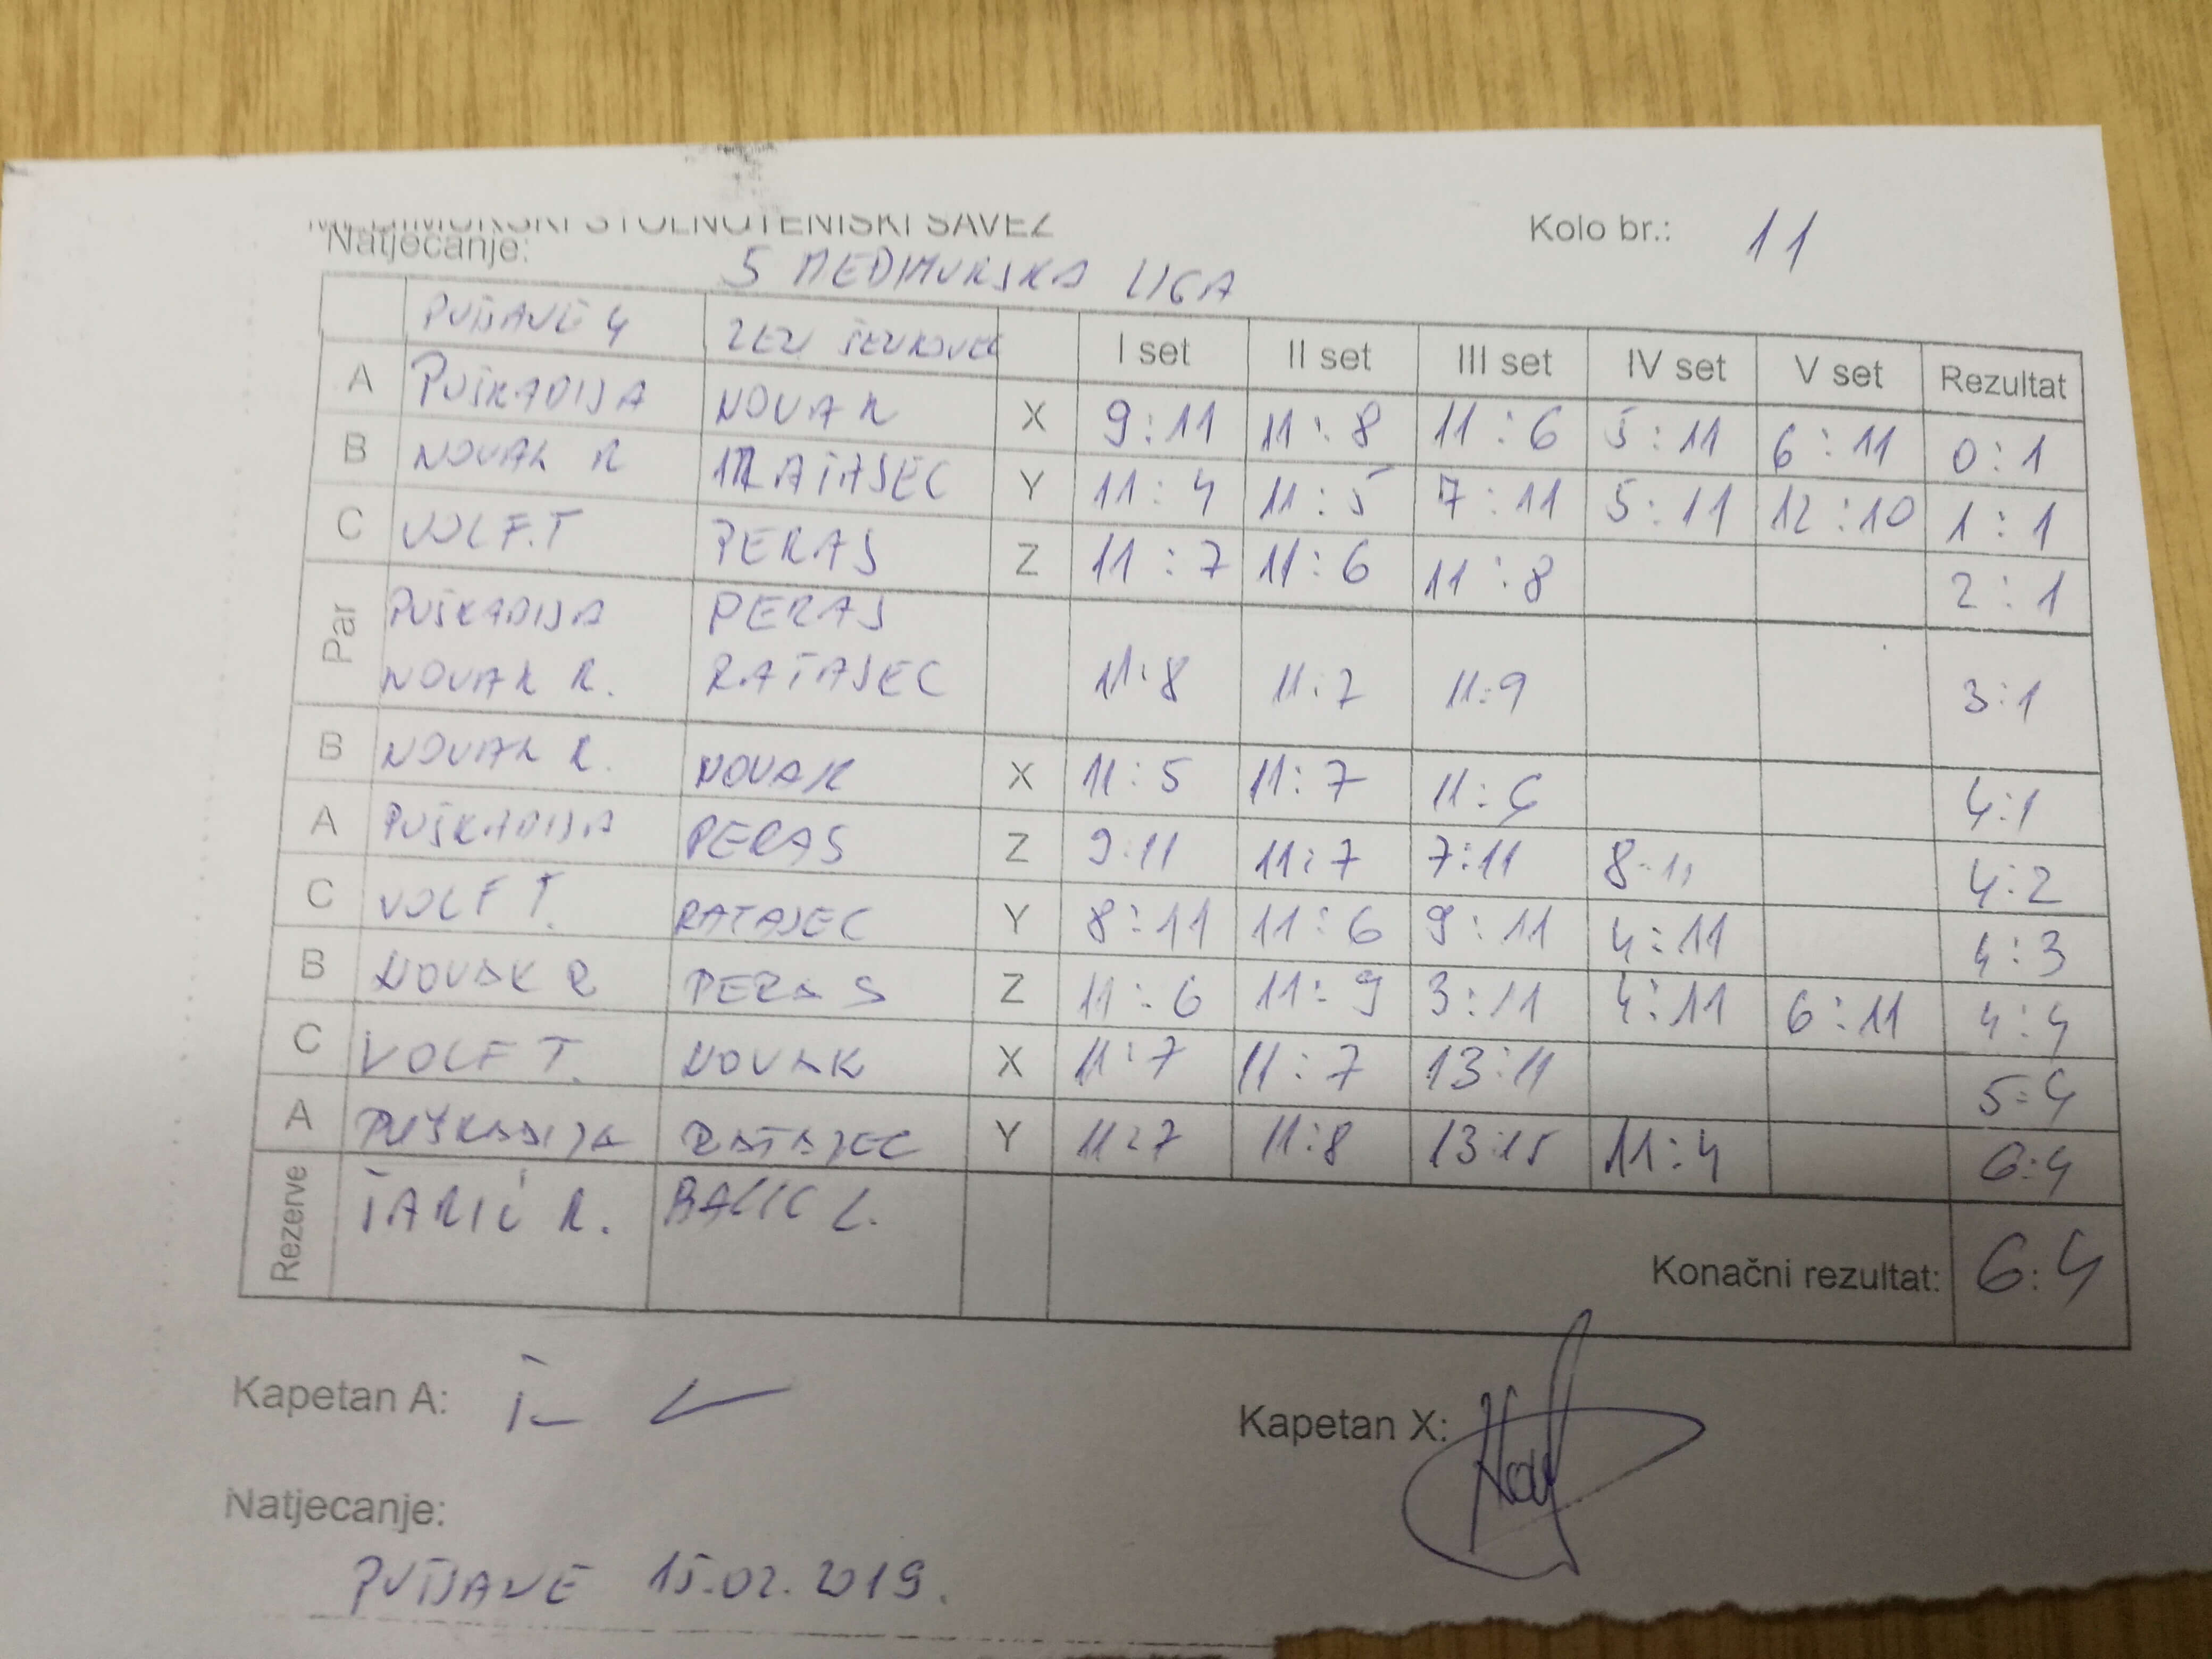 MEĐIMURSKI STOLNOTENISKI SAVEZ
Kolo br.: 11
Natjecanje: 5 MEĐIMURSKA LIGA
PUŠĆAVE 4 I set II set III set IV set V set Rezultat
A PUŠKADIJA NOVAK X 9:11 11:8 11:6 5:11 6:11 0:1
B NOVAK R RATAJEC Y 11:4 11:5 7:11 5:11 12:10 1:1
C VOLF.T PERAS Z 11:7 11:6 11:8 2:1
Par PUŠKADIJA PERAS
NOVAK R. RATAJEC 11:8 11:7 11:9 3:1
B NOVAK R. NOVAK X 11:5 11:7 11:6 4:1
A PUŠKADIJA PERAS Z 9:11 11:7 7:11 8:11 4:2
C VOLF T. RATAJEC Y 8:11 11:6 9:11 4:11 4:3
B NOVAK R PERAS Z 11:6 11:9 3:11 4:11 6:11 4:4
C VOLF T. NOVAK X 11:7 11:7 13:11 5:4
A PUŠKADIJA RATAJEC Y 11:7 11:8 13:15 11:4 6:4
Rezerve R. L.
Konačni rezultat: 6:4
Kapetan A:
Kapetan X:
Natjecanje:
15.02.2019.